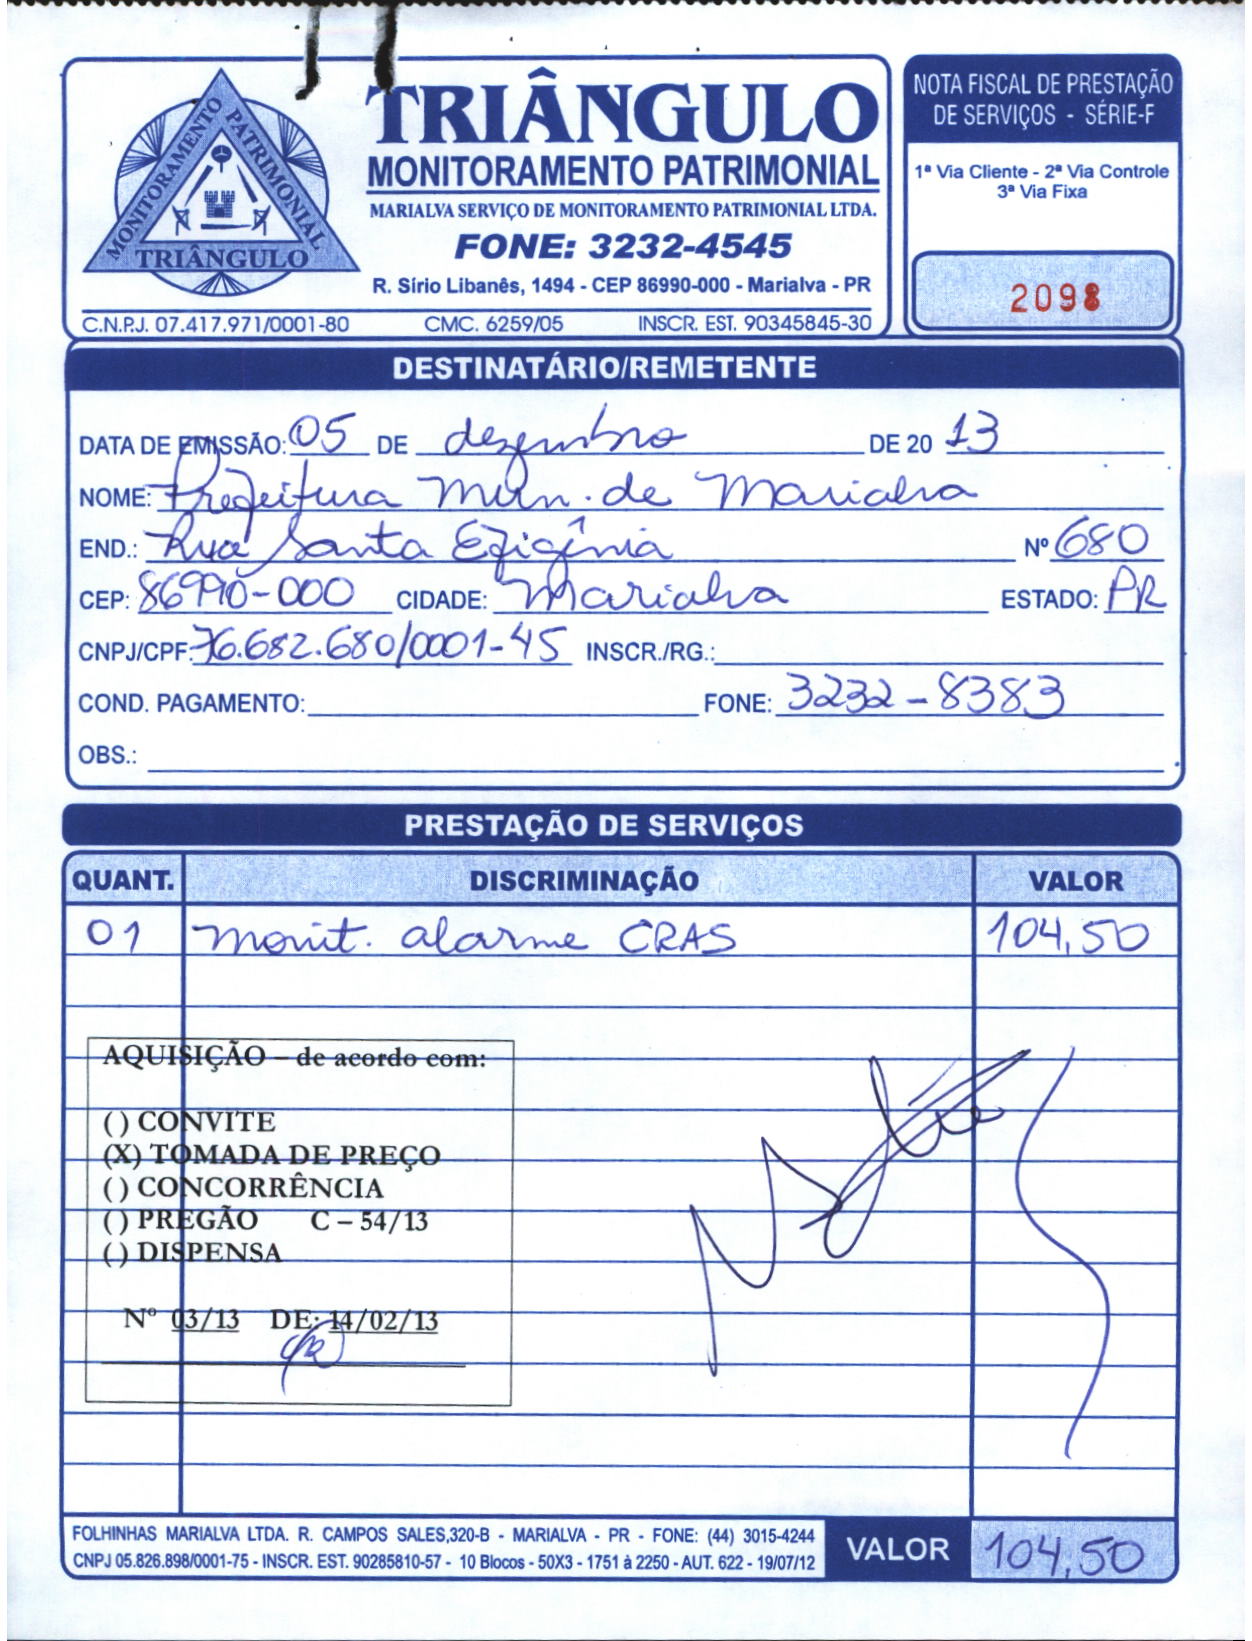 MONITORAMENTO PATRIMONIAL
TRIÂNGULO
TRIÂNGULO
MONITORAMENTO PATRIMONIAL
MARIALVA SERVIÇO DE MONITORAMENTO PATRIMONIAL LTDA.
FONE: 3232-4545
R. Sírio Libanês, 1494 - CEP 86990-000 - Marialva - PR
C.N.P.J. 07.417.971/0001-80 CMC. 6259/05 INSCR. EST. 90345845-30
NOTA FISCAL DE PRESTAÇÃO
DE SERVIÇOS - SÉRIE-F
1ª Via Cliente - 2ª Via Controle
3ª Via Fixa
2098
DESTINATÁRIO/REMETENTE
DATA DE EMISSÃO: 05 DE dezembro DE 20 13
NOME: Prefeitura Mun. de Marialva
END.: Rua Santa Efigênia Nº 680
CEP: 86990-000 CIDADE: Marialva ESTADO: PR
CNPJ/CPF: 76.682.680/0001-45 INSCR./RG.:
COND. PAGAMENTO: FONE: 3232-8383
OBS.:
PRESTAÇÃO DE SERVIÇOS
QUANT. DISCRIMINAÇÃO VALOR
01 monit. alarme CRAS 104,50
AQUISIÇÃO – de acordo com:
( ) CONVITE
(X) TOMADA DE PREÇO
( ) CONCORRÊNCIA
( ) PREGÃO C – 54/13
( ) DISPENSA
Nº 03/13 DE: 14/02/13
FOLHINHAS MARIALVA LTDA. R. CAMPOS SALES,320-B - MARIALVA - PR - FONE: (44) 3015-4244
CNPJ 05.826.898/0001-75 - INSCR. EST. 90285810-57 - 10 Blocos - 50X3 - 1751 à 2250 - AUT. 622 - 19/07/12
VALOR 104,50